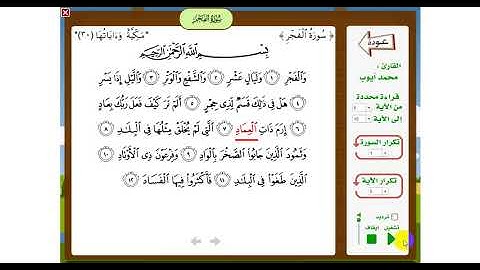 سُورَةُ الفَجْرِ
﴿ سُورَةُ الْفَجْرِ ﴾
*مَكِّيَّةٌ وَءَايَاتُهَا (٣٠)*
بِسْمِ اللَّهِ الرَّحْمَٰنِ الرَّحِيمِ
وَالْفَجْرِ ١ وَلَيَالٍ عَشْرٍ ٢ وَالشَّفْعِ وَالْوَتْرِ ٣ وَاللَّيْلِ إِذَا يَسْرِ
٤ هَلْ فِي ذَٰلِكَ قَسَمٌ لِّذِي حِجْرٍ ٥ أَلَمْ تَرَ كَيْفَ فَعَلَ رَبُّكَ بِعَادٍ
٦ إِرَمَ ذَاتِ الْعِمَادِ ٧ الَّتِي لَمْ يُخْلَقْ مِثْلُهَا فِي الْبِلَادِ ٨
وَثَمُودَ الَّذِينَ جَابُوا الصَّخْرَ بِالْوَادِ ٩ وَفِرْعَوْنَ ذِي الْأَوْتَادِ ١٠
الَّذِينَ طَغَوْا فِي الْبِلَادِ ١١ فَأَكْثَرُوا فِيهَا الْفَسَادَ ١٢
عودة
القارئ :
محمد أيوب
قراءة محددة
من الآية
إلى الآية
تكرار السورة
تكرار الآية
ترديد
تشغيل إيقاف